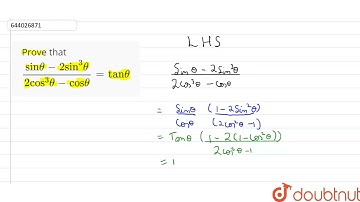 644026871
Prove that
sinθ − 2sin³θ / 2cos³θ − cosθ = tanθ
LHS
Sinθ − 2Sin³θ / 2Cos³θ − Cosθ
= Sinθ (1 − 2Sin²θ) / Cosθ (2Cos²θ − 1)
= Tanθ (1 − 2(1 − Cos²θ)) / 2Cos²θ − 1
= 1
doubtnut